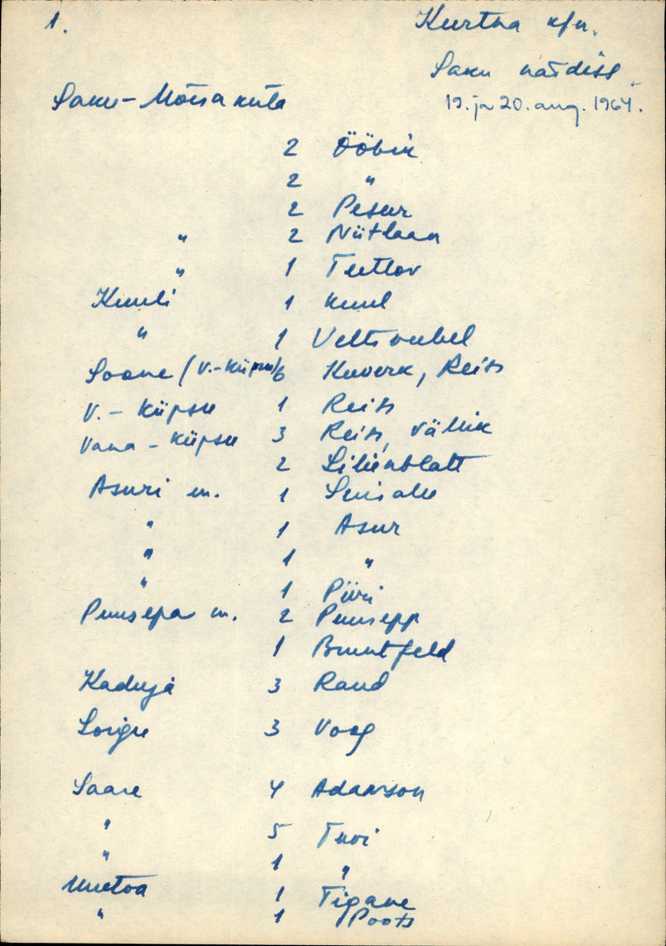 1.
Kurtna k/n.
Saku näidiss.
19. ja 20. aug. 1964.
Saku-Mõisaküla
2 Ööbik
2 "
2 Pesur
" 2 Niitlaan
" 1 Teetlov
Kuuli 1 Kuul
" 1 Veltsvebel
Soone (V.-Küpsu) 6 Kuverk, Reits
V. - Küpsu 1 Reits
Vana - Küpsu 3 Reits, Vällik
2 Lilienblatt
Asuri m. 1
" 1 Asur
" 1 "
" 1 Piiri
Puusepa m. 2 Puusepp
1 Bruntfeld
Kaduja 3 Rand
Soigu 3 Voog
Saare 4 Adamson
" 5 Turi
" 1 "
Uuetoa 1 Tigane
" 1 Poots